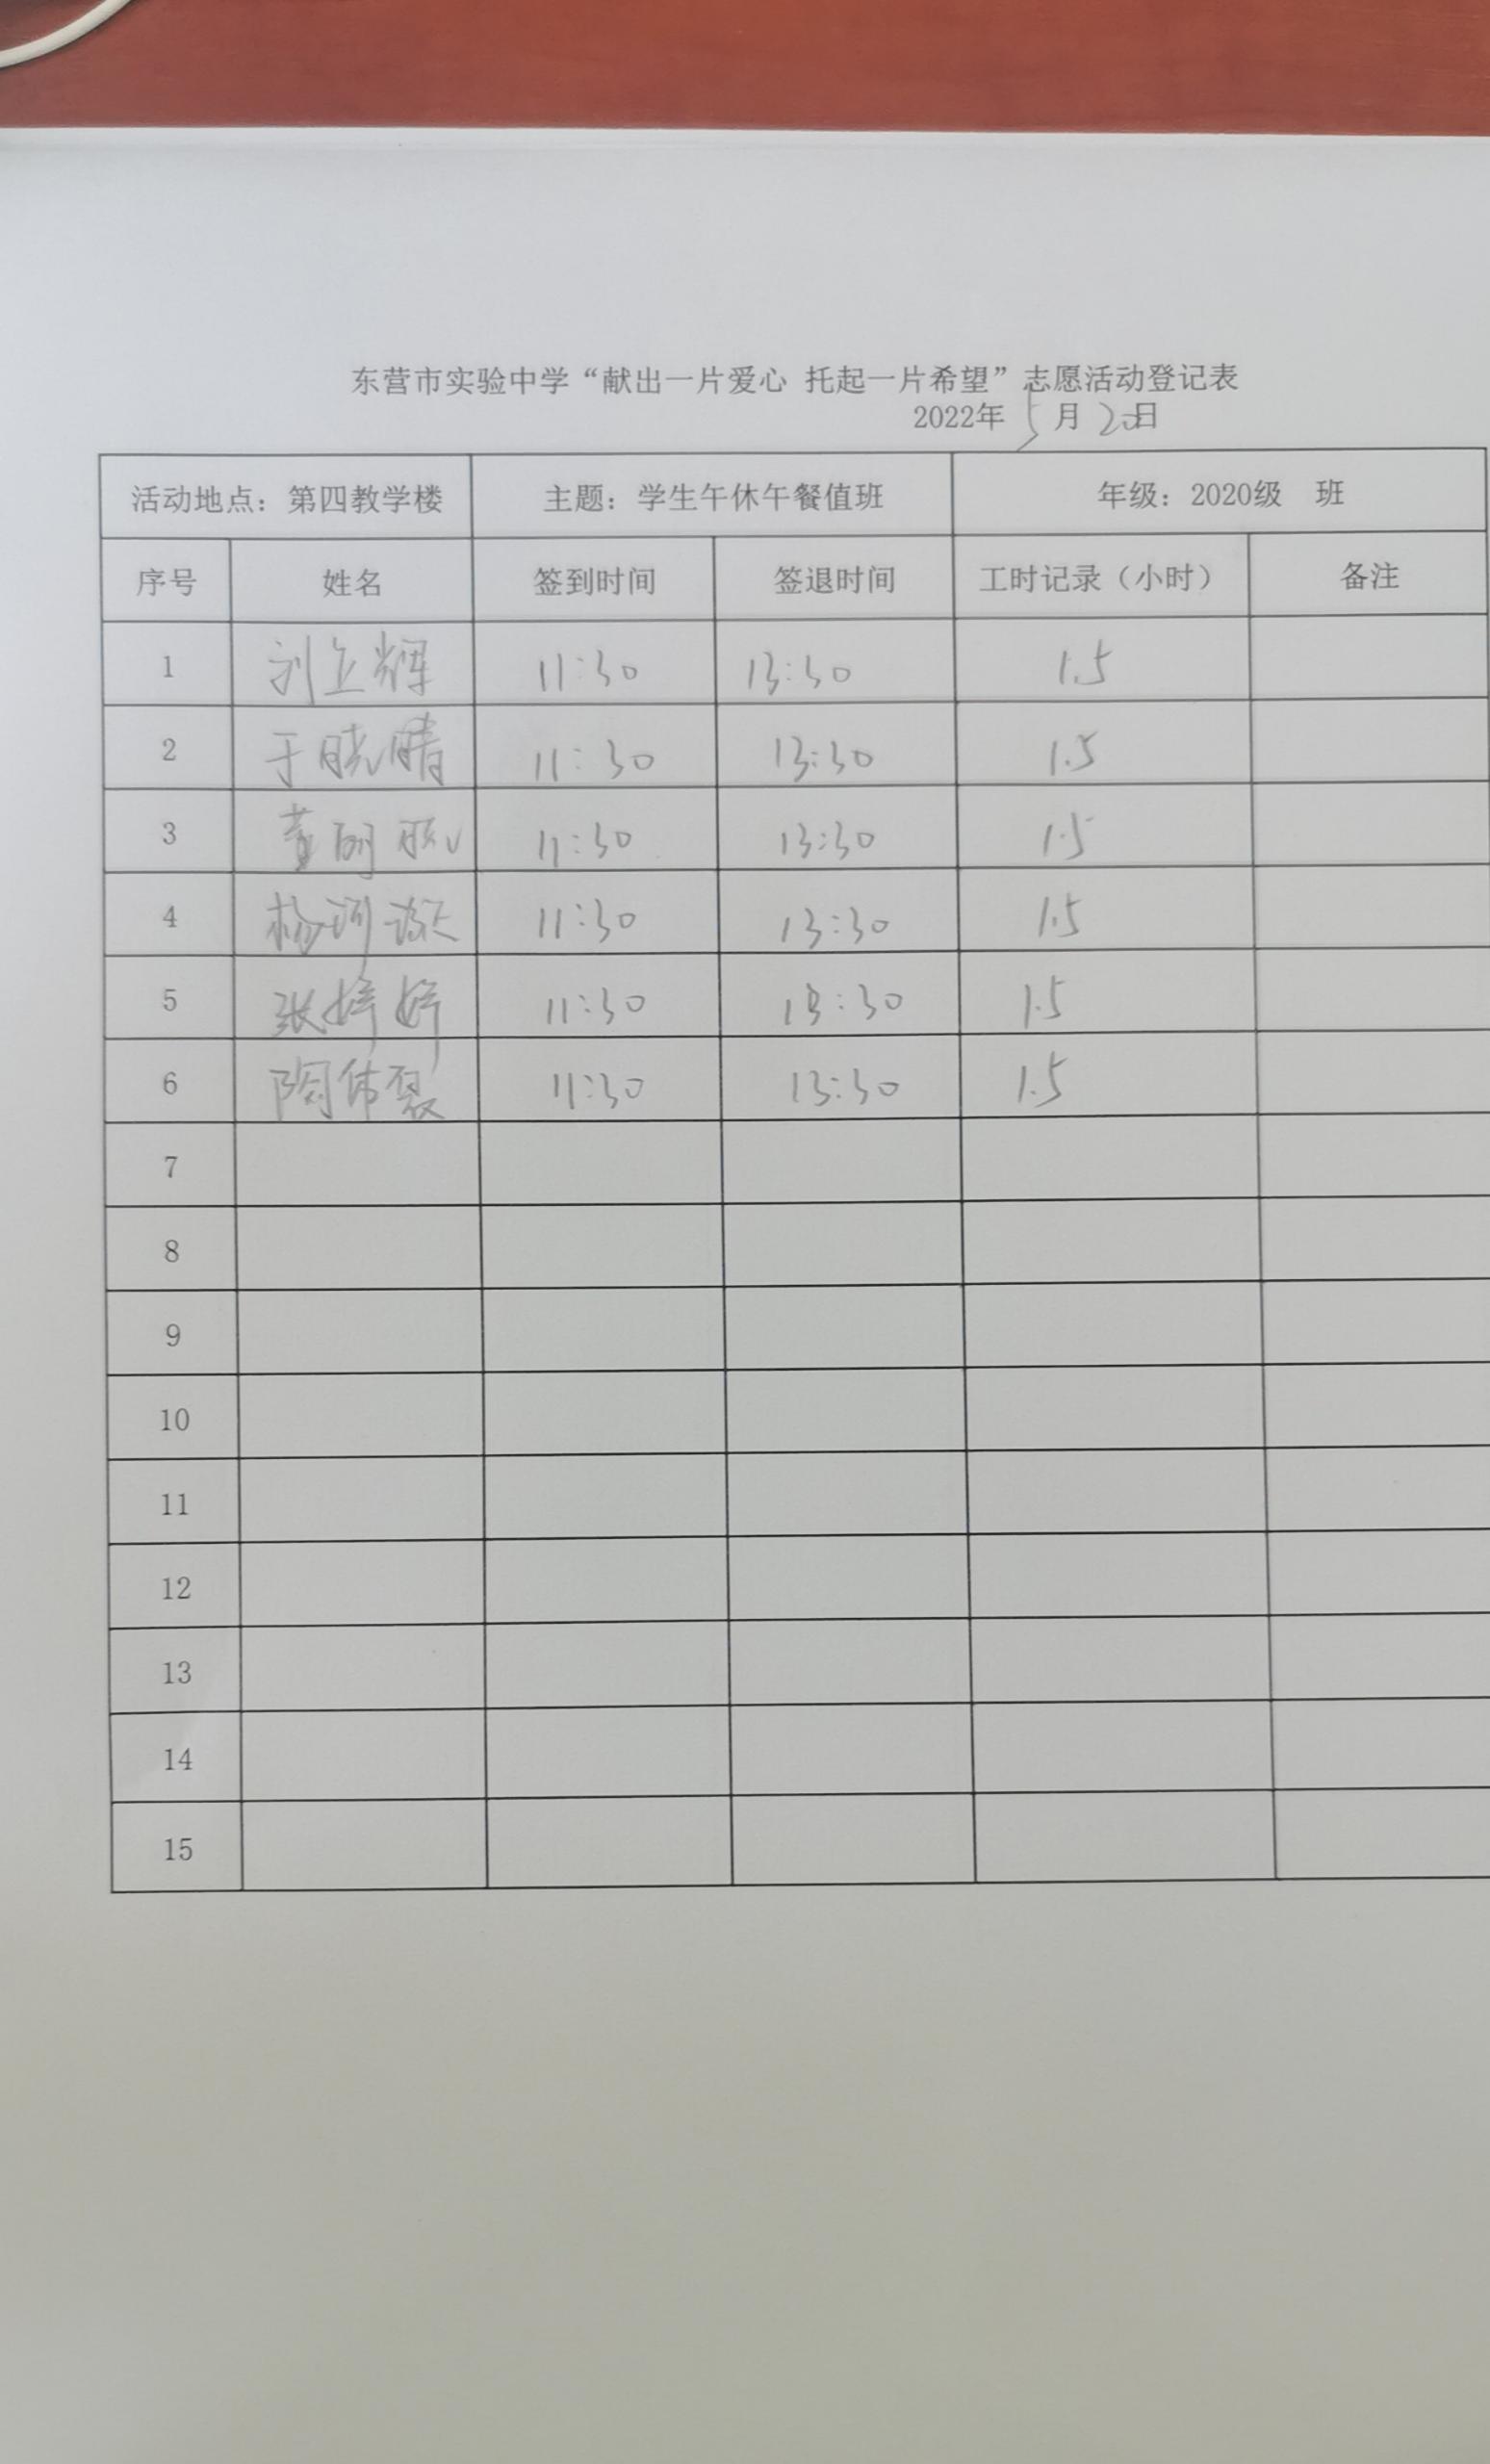 东营市实验中学“献出一片爱心 托起一片希望”志愿活动登记表
2022年 5月 20日
活动地点：第四教学楼 主题：学生午休午餐值班 年级：2020级 班
序号 姓名 签到时间 签退时间 工时记录（小时） 备注
1 刘立辉 11:30 13:30 1.5
2 于晓晴 11:30 13:30 1.5
3 董丽 11:30 13:30 1.5
4 杨 11:30 13:30 1.5
5 张婷婷 11:30 13:30 1.5
6 陶伟 11:30 13:30 1.5
7
8
9
10
11
12
13
14
15